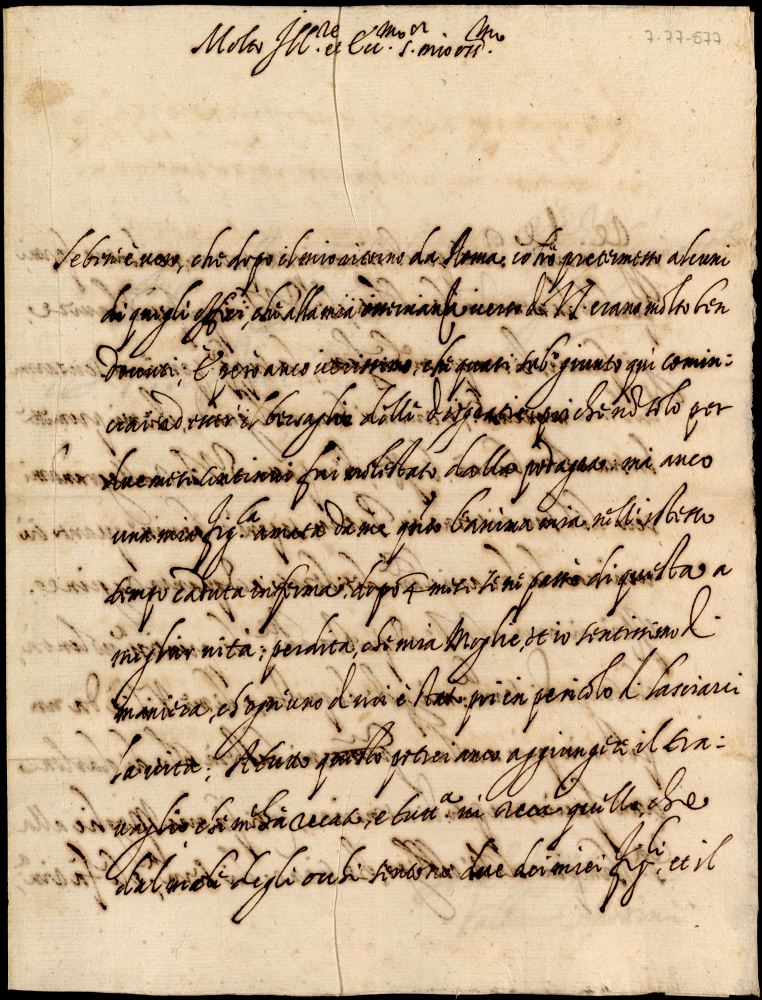 7-77-577
Molto Ill.re et Ecc.mo S.or mio oss.mo
Se ben è vero, che dopo il mio ritorno da Roma, io hò pretermesso alcuni
di quegli offitii, che alla mia verso di V.S. erano molto ben
dovuti; È però anco verissimo, che quasi sub.o giunto qui comin:
ciai ad esser il bersaglio delle disgratie, poi che nõ solo per
due mesi continui fui molestato dalla podagra, mà anco
una mia fig.la amata da me quãto l'anima mia, nell'istesso
tempo caduta inferma, dopo 4 mesi se ne passò di questa a
miglior vita; perdita, che mia Moglie, et io sentissimo di
maniera, ch'ogn'uno di noi è stato poi in pericolo di lasciarci
la vita; A tutto questo potrei anco aggiungere il tra:
vaglio che mi hà recato, e tutt.a vi reca quello, che
dal male degli occhi sentono due dei miei fig.li, et il